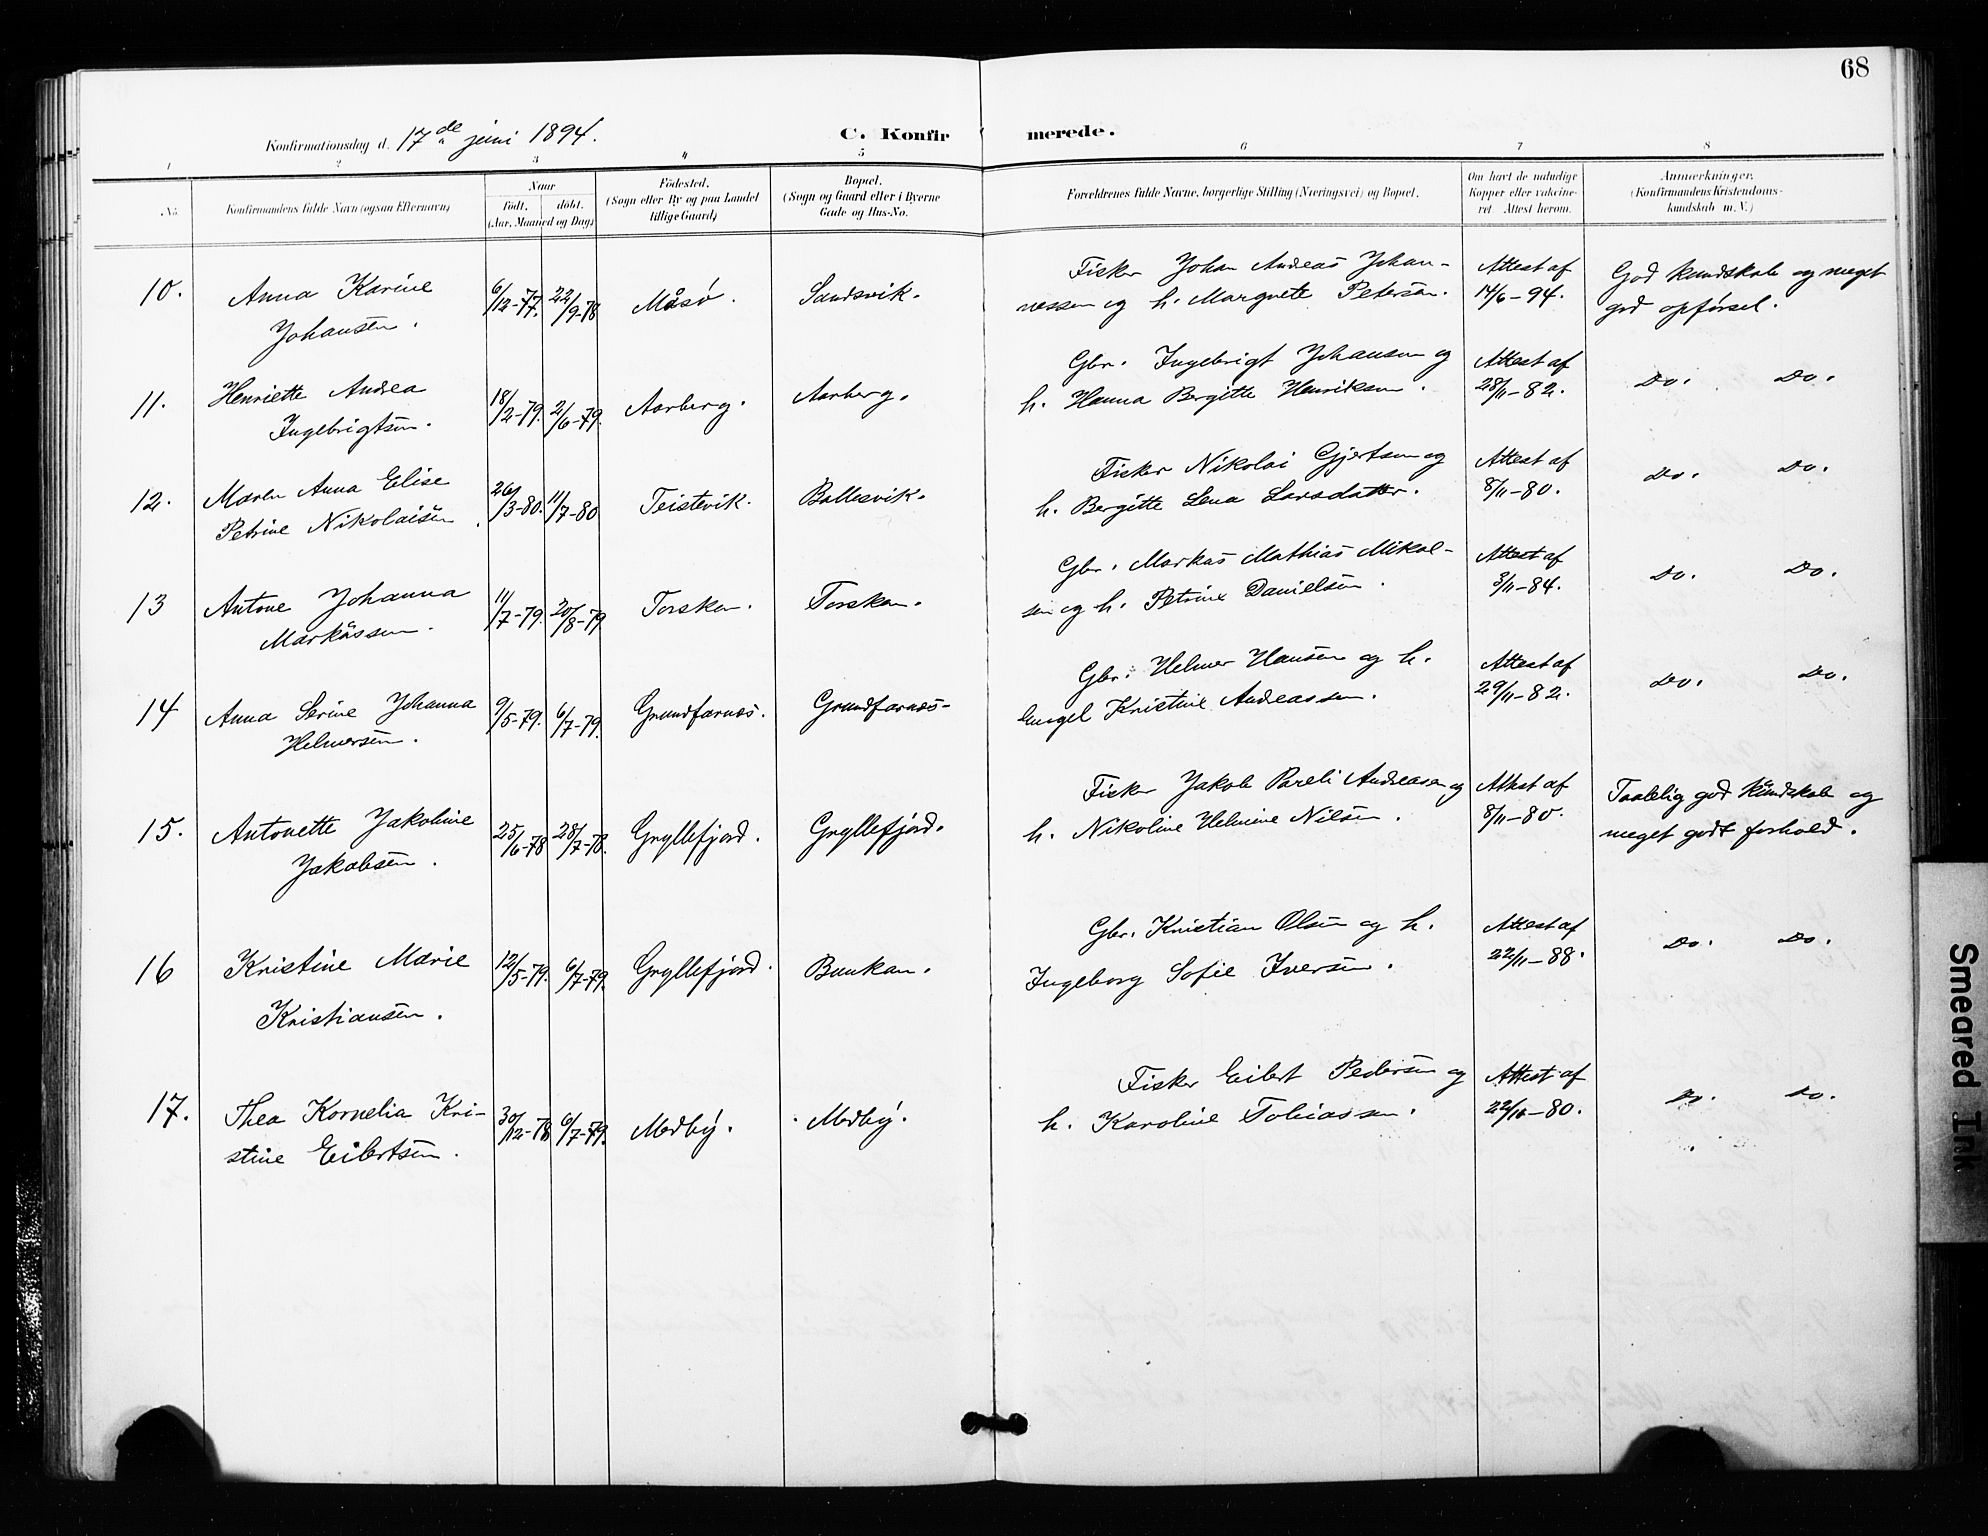 68
Konfirmationsdag d. 17de juni 1894.
C. Konfirmerede.
1 2 3 4 5 6 7 8
No.
Konfirmandens fulde Navn (ogsaa Efternavn)
Naar
födt. döbt.
(Aar, Maaned og Dag)
Födested.
(Sogn eller By og paa Landet
tillige Gaard)
Bopæl.
(Sogn og Gaard eller i Byerne
Gade og Hus-No.
Forældrenes fulde Navne, borgerlige Stilling (Næringsvei) og Bopæl.
Om havt de naturlige
Kopper eller vakcine-
ret. Attest herom.
Anmærkninger.
(Konfirmandens Kristendoms-
kundskab m. V.)
10. Anna Karine
Johansen.
6/12-77. 22/9-78 Måsø. Sandsvik.
Fisker Johan Andreas Johan-
nessen og h. Margrete Petersen.
Attest af
14/6-94.
God kundskab og meget
god opførsel.
11. Henriette Andrea
Ingebrigtsen.
18/2-79. 2/6-79. Aarberg. Aarberg.
Gbr. Ingebrigt Johansen og
h. Hanna Bergitte Henriksen.
Attest af
28/11-82.
Do. Do.
12. Maren Anna Elise
Petrine Nikolaisen.
26/3-80. 11/7-80 Teistevik. Ballesvik.
Fisker Nikolai Gjertsen og
h. Bergitte Lena Larsdatter.
Attest af
8/11-80.
Do. Do.
13 Antone Johanna
Markussen.
11/7-79. 20/8-79 Torsken. Torsken.
Gbr. Markus Mathias Mikal-
sen og h. Petrine Danielsen.
Attest af
3/11-84.
Do. Do.
14 Anna Serine Johanna
Helmersen.
9/5-79. 6/7-79. Grundfarnæs. Grundfarnæs-
Gbr. Helmer Hansen og h.
Engel Kristine Andreassen.
Attest af
29/11-82.
Do. Do.
15. Antonette Jakobine
Jakobsen.
25/6-78 28/7-78. Gryllefjord. Gryllefjord.
Fisker Jakob Pareli Andreasen og
h. Nikoline Helmine Nilsen.
Attest af
8/11-80.
Taalelig god kundskab og
meget godt forhold.
16 Kristine Marie
Kristiansen.
12/5-79. 6/7-79. Gryllefjord. Bunkan.
Gbr. Kristian Olsen og h.
Ingeborg Sofie Iversen.
Attest af
22/11-88.
Do. Do.
17. Thea Kornelia Kri-
stine Eilertsen.
30/12-78 6/7-79. Medby. Medby.
Fisker Eilert Pedersen og
h. Karoline Tobiassen.
Attest af
22/11-80.
Do. Do.
Smeared Ink